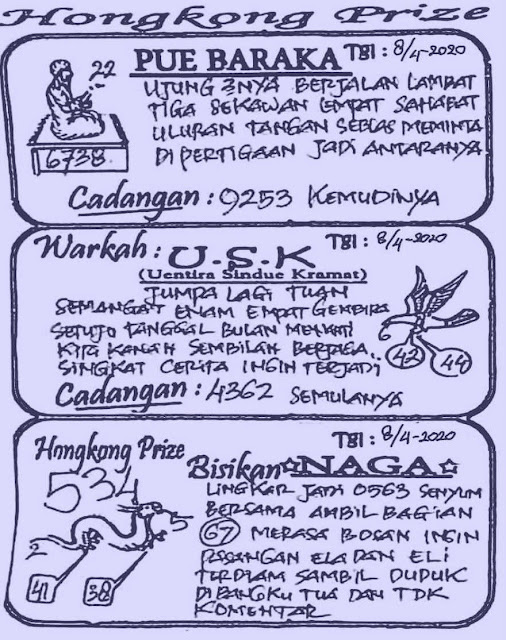 Hongkong Prize
PUE BARAKA TGl : 8/4-2020
22
UJUNG 3NYA BERJALAN LAMBAT
TIGA SEKAWAN EMPAT SAHABAT
ULURAN TANGAN SEBLAS MEMINTA
DIPERTIGAAN JADI ANTARANYA
6738
Cadangan : 9253 KEMUDINYA
Warkah : U-S-K TGl : 8/4-2020
(Uentira Sindue Kramat)
JUMPA LAGI TUAN
SEMANGAT ENAM EMPAT GEMBIRA
SETUJU TANGGAL BULAN MENANTI
KIRI KANAN SEMBILAN BERJAGA..
SINGKAT CERITA INGIN TERJADI
42 44
Cadangan : 4362 SEMULANYA
Hongkong Prize TGl : 8/4-2020
Bisikan ☆NAGA☆
534
LINGKAR JADI 0563 SENYUM
BERSAMA AMBIL BAGIAN
67 MERASA BOSAN INGIN
PASANGAN ELA DAN ELI
TERDIAM SAMBIL DUDUK
DIBANGKU TUA DAN TDK
KOMENTAR
2 5
41 38